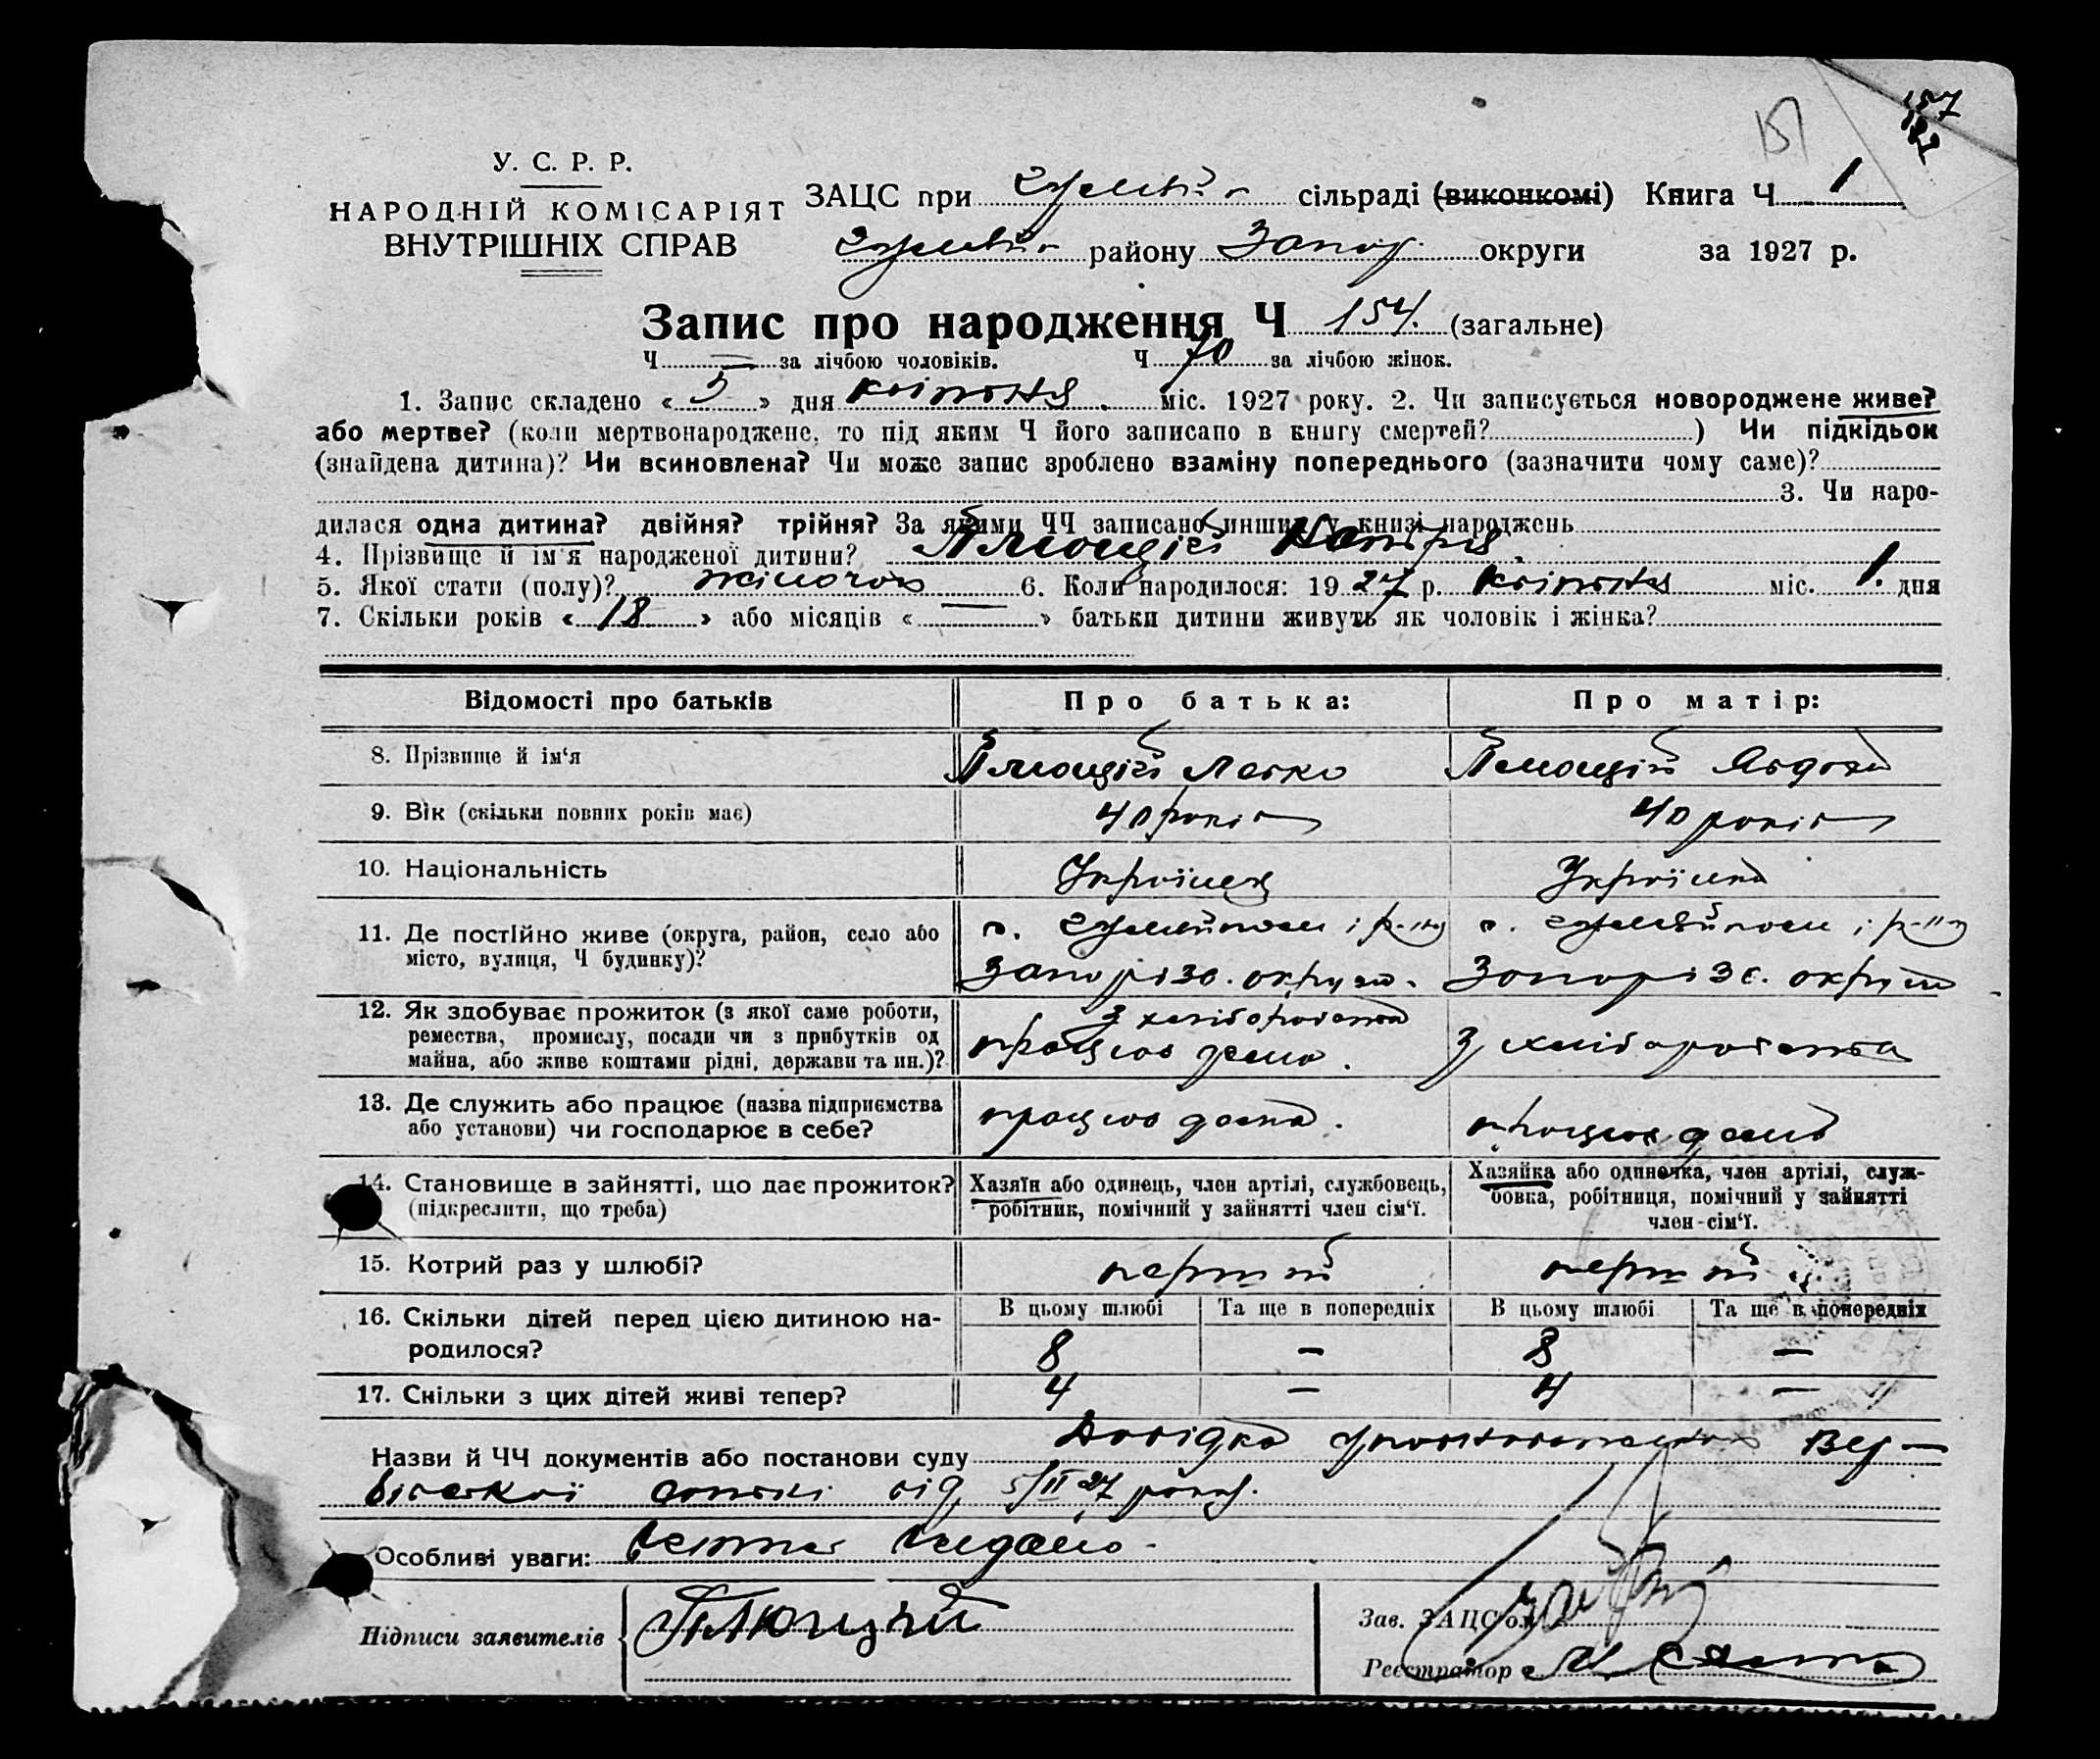 157
У. С. Р. Р.
НАРОДНІЙ КОМІСАРІЯТ
ВНУТРІШНІХ СПРАВ
ЗАЦС при сільраді (виконкомі) Книга Ч 1
району Запор. округи за 1927 р.
Запис про народження Ч 154. (загальне)
Ч — за лічбою чоловіків. Ч 70 за лічбою жінок.
1. Запис складено « 5 » дня квітня міс. 1927 року. 2. Чи записується новороджене живе?
або мертве? (коли мертвонароджене, то під яким Ч його записано в книгу смертей? ) Чи підкідьок
(знайдена дитина)? Чи всиновлена? Чи може запис зроблено взаміну попереднього (зазначити чому саме)?
3. Чи наро-
дилася одна дитина? двійня? трійня? За якими ЧЧ записано инших у книзі народжень
4. Прізвище й ім'я народженої дитини? Плющій
5. Якої стати (полу)? жіночої 6. Коли народилося: 1927 р. квітня міс. 1. дня
7. Скільки років « 18 » або місяців « — » батьки дитини живуть як чоловік і жінка?
Відомості про батьків Про батька: Про матір:
8. Прізвище й ім'я Плющій Левко Плющій Явдоха
9. Вік (скільки повних років має) 40 років 40 років
10. Національність Українец Українка
11. Де постійно живе (округа, район, село або
місто, вулиця, Ч будинку)?
Запорізс. округи. Запорізс. округи
12. Як здобуває прожиток (з якої саме роботи,
ремества, промислу, посади чи з прибутків од
майна, або живе коштами рідні, держави та ин.)?
з хліборобства
працює дома. з хліборобства
13. Де служить або працює (назва підприємства
або установи) чи господарює в себе?
працює дома. працює дома
14. Становище в зайнятті, що дає прожиток?
(підкреслити, що треба)
Хазяїн або одинець, член артілі, службовець,
робітник, помічний у зайнятті член сім'ї.
Хазяйка або одиночка, член артілі, служ-
бовка, робітниця, помічний у зайнятті
член-сім'ї.
15. Котрий раз у шлюбі? перший перший
16. Скільки дітей перед цією дитиною на-
родилося?
В цьому шлюбі Та ще в попередніх В цьому шлюбі Та ще в попередніх
8 — 8 —
17. Скільки з цих дітей живі тепер? 4 — 4 —
Назви й ЧЧ документів або постанови суду Довідка
від 5/II 27 року.
Особливі уваги: видано.
Підписи заявителів Плющий
Зав. ЗАЦС'ом
Реєстратор